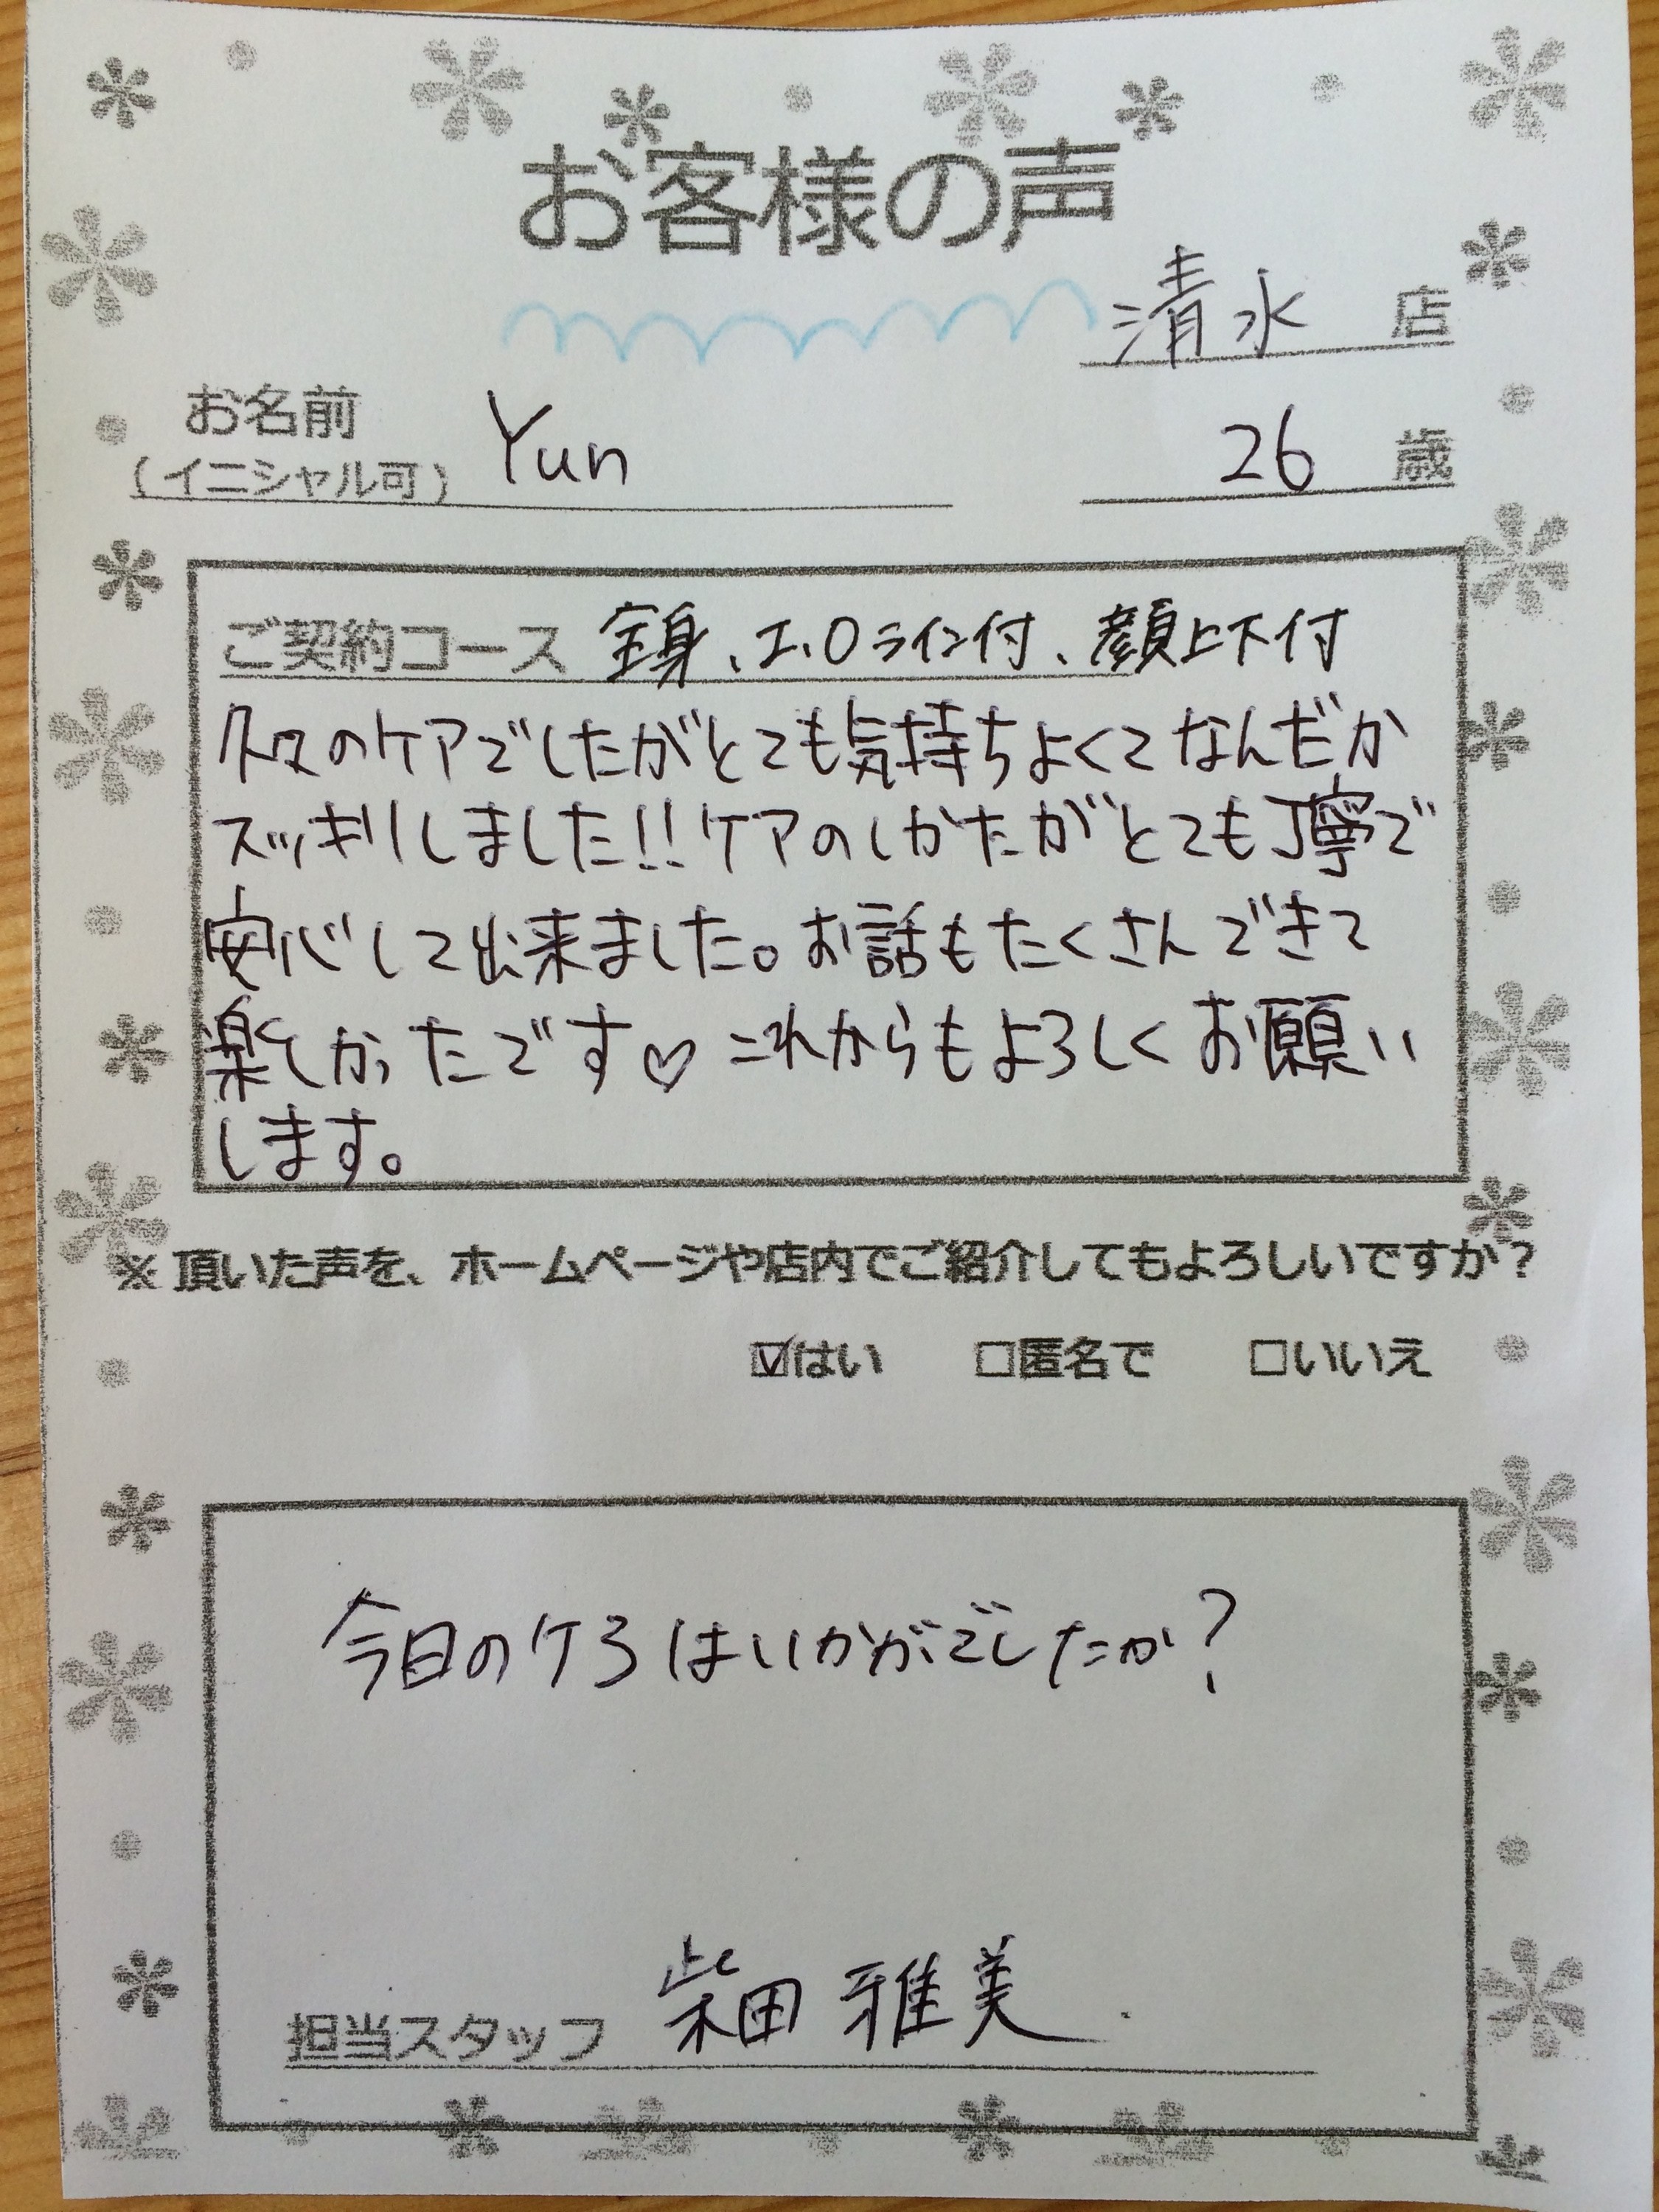 お客様の声
清水 店
お名前
(イニシャル可) Yun 26 歳
ご契約コース 全身、I、Oライン付、顔上下付
久々のケアでしたがとても気持ちよくてなんだか
スッキリしました!!ケアのしかたがとても丁寧で
安心して出来ました。お話もたくさんできて
楽しかったです♡これからもよろしくお願い
します。
※頂いた声を、ホームページや店内でご紹介してもよろしいですか?
☑はい □匿名で □いいえ
今日のケアはいかがでしたか?
担当スタッフ 柴田 雅美